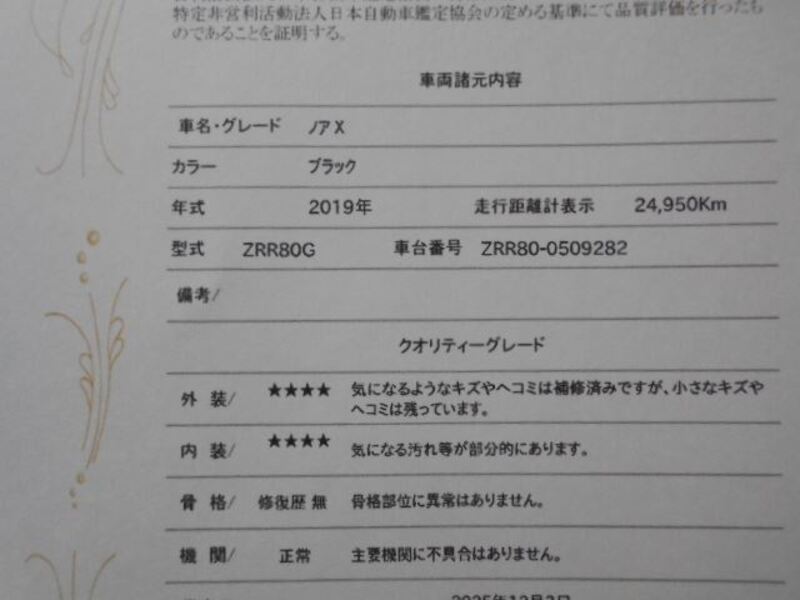 特定非営利活動法人日本自動車鑑定協会の定める基準にて品質評価を行ったも
のであることを証明する。
車両諸元内容
車名・グレード ノア X
カラー ブラック
年式 2019年 走行距離計表示 24,950Km
型式 ZRR80G 車台番号 ZRR80-0509282
備考/
クオリティーグレード
外 装/ ★★★★ 気になるようなキズやヘコミは補修済みですが、小さなキズや
ヘコミは残っています。
内 装/ ★★★★ 気になる汚れ等が部分的にあります。
骨 格/ 修復歴 無 骨格部位に異常はありません。
機 関/ 正常 主要機関に不具合はありません。